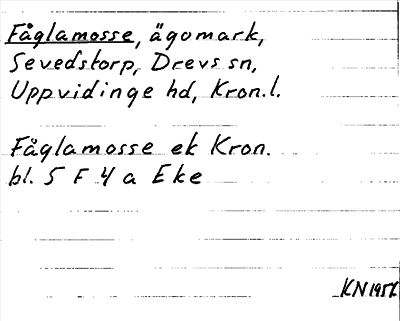 Fåglamosse, ägomark,
Sevedstorp, Drevs sn,
Uppvidinge hd, Kron.l.
Fåglamosse ek Kron.
bl. 5 F 4 a Eke
KN 1957